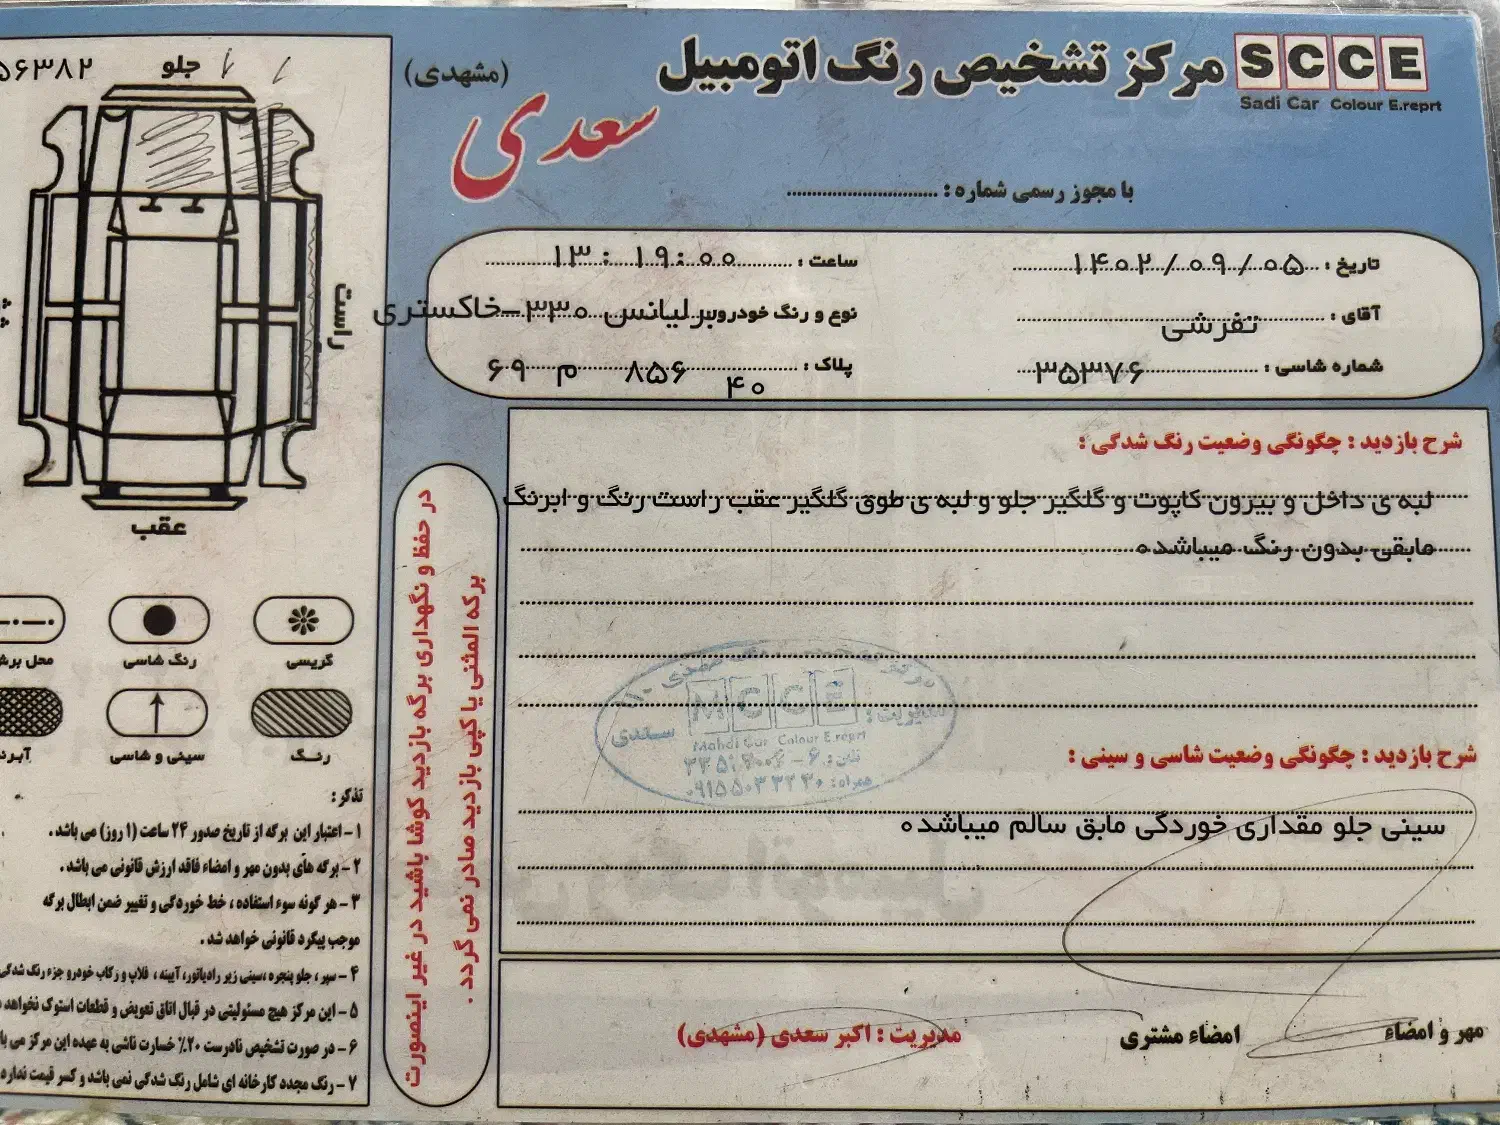 SCCE
Sadi Car Colour E.reprt
مرکز تشخیص رنگ اتومبیل
سعدی
(مشهدی)
با مجوز رسمی شماره :
تاریخ : ۱۴۰۲/۰۹/۰۵
ساعت : ۱۳:۱۹:۰۰
آقای : تفرشی
نوع و رنگ خودرو برلیانس ۳۳۰-خاکستری
شماره شاسی : ۳۵۳۷۶
پلاک : ۸۵۶ م ۶۹
۴۰
شرح بازدید : چگونگی وضعیت رنگ شدگی :
لبه ی داخل و بیرون کاپوت و گلگیر جلو و لبه ی طوق گلگیر عقب راست رنگ و ابرنگ
مابقی بدون رنگ میباشده
MCCE
Mahdi Car Colour E.reprt
مدیریت : سعدی
همراه : ۰۹۱۵۵۰۳۳۲۲۰
شرح بازدید : چگونگی وضعیت شاسی و سینی :
سینی جلو مقداری خوردگی مابق سالم میباشده
مهر و امضاء
امضاء مشتری
مدیریت : اکبر سعدی (مشهدی)
در حفظ و نگهداری برگه بازدید کوشا باشید در غیر اینصورت
برگه المثنی یا کپی بازدید صادر نمی گردد .
۵۶۳۸۲
جلو
راست
عقب
گریسی
رنگ شاسی
محل برش
رنگ
سینی و شاسی
تذکر :
۱ - اعتبار این برگه از تاریخ صدور ۲۴ ساعت (۱ روز) می باشد .
۲ - برگه های بدون مهر و امضاء فاقد ارزش قانونی می باشد .
۳ - هر گونه سوء استفاده ، خط خوردگی و تغییر ضمن ابطال برگه
موجب پیگرد قانونی خواهد شد .
۴ - سپر ، جلو پنجره ،سینی زیر رادیاتور، آیینه ، قلاب و رکاب خودرو جزء رنگ شدگی
۵ - این مرکز هیچ مسئولیتی در قبال اتاق تعویض و قطعات استوک نخواهد
۶ - در صورت تشخیص نادرست ۲۰٪ خسارت ناشی به عهده این مرکز می
۷ - رنگ مجدد کارخانه ای شامل رنگ شدگی نمی باشد و کسر قیمت ندارد